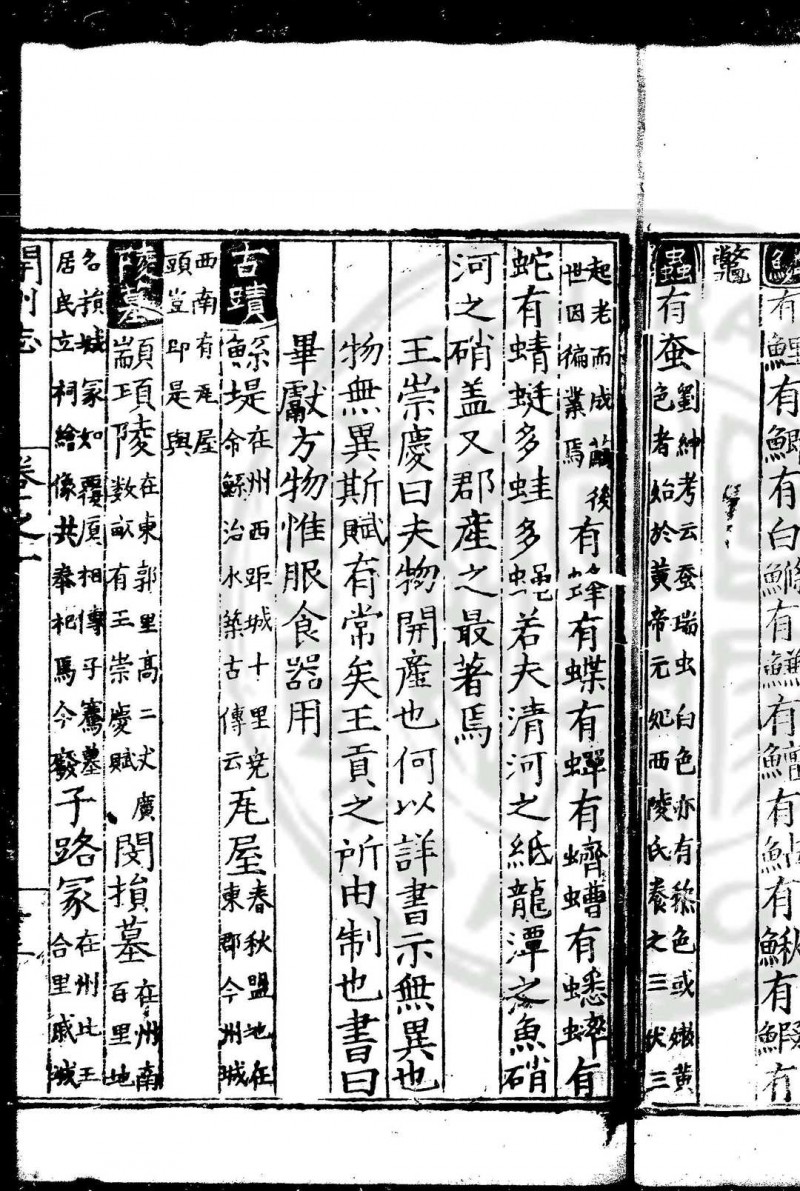 魚有鯉有鯽有白鰷有鱔有鱣有鮎有鰍有鰕有
鱉
蟲有蚕劉紳考云蚕瑞虫白色亦有黎色或嫩黃
色者始於黃帝元妃西陵氏養之三伏三
起老而成繭後
世因徧業焉有蜂有蝶有蟬有蠐螬有蟋蟀有
蛇有蜻蜓多蛙多蠅若夫清河之紙龍潭之魚硝
河之硝盖又郡產之最著焉
王崇慶曰夫物開產也何以詳書示無異也
物無異斯賦有常矣王貢之所由制也書曰
畢獻方物惟服食器用
古蹟鯀堤在州西距城十里堯
命鯀治水築古傳云瓦屋春秋盟地在
東郡今州城
西南有瓦屋
頭豈即是與
陵墓顓頊陵在東郭里高二丈廣
數畝有王崇慶賦閔損墓在州南
百里地
名損城冢如覆廈相傳子騫墓
居民立祠繪像共奉祀焉今廢子路冢在州北王
合里戚城
開州志
卷之一